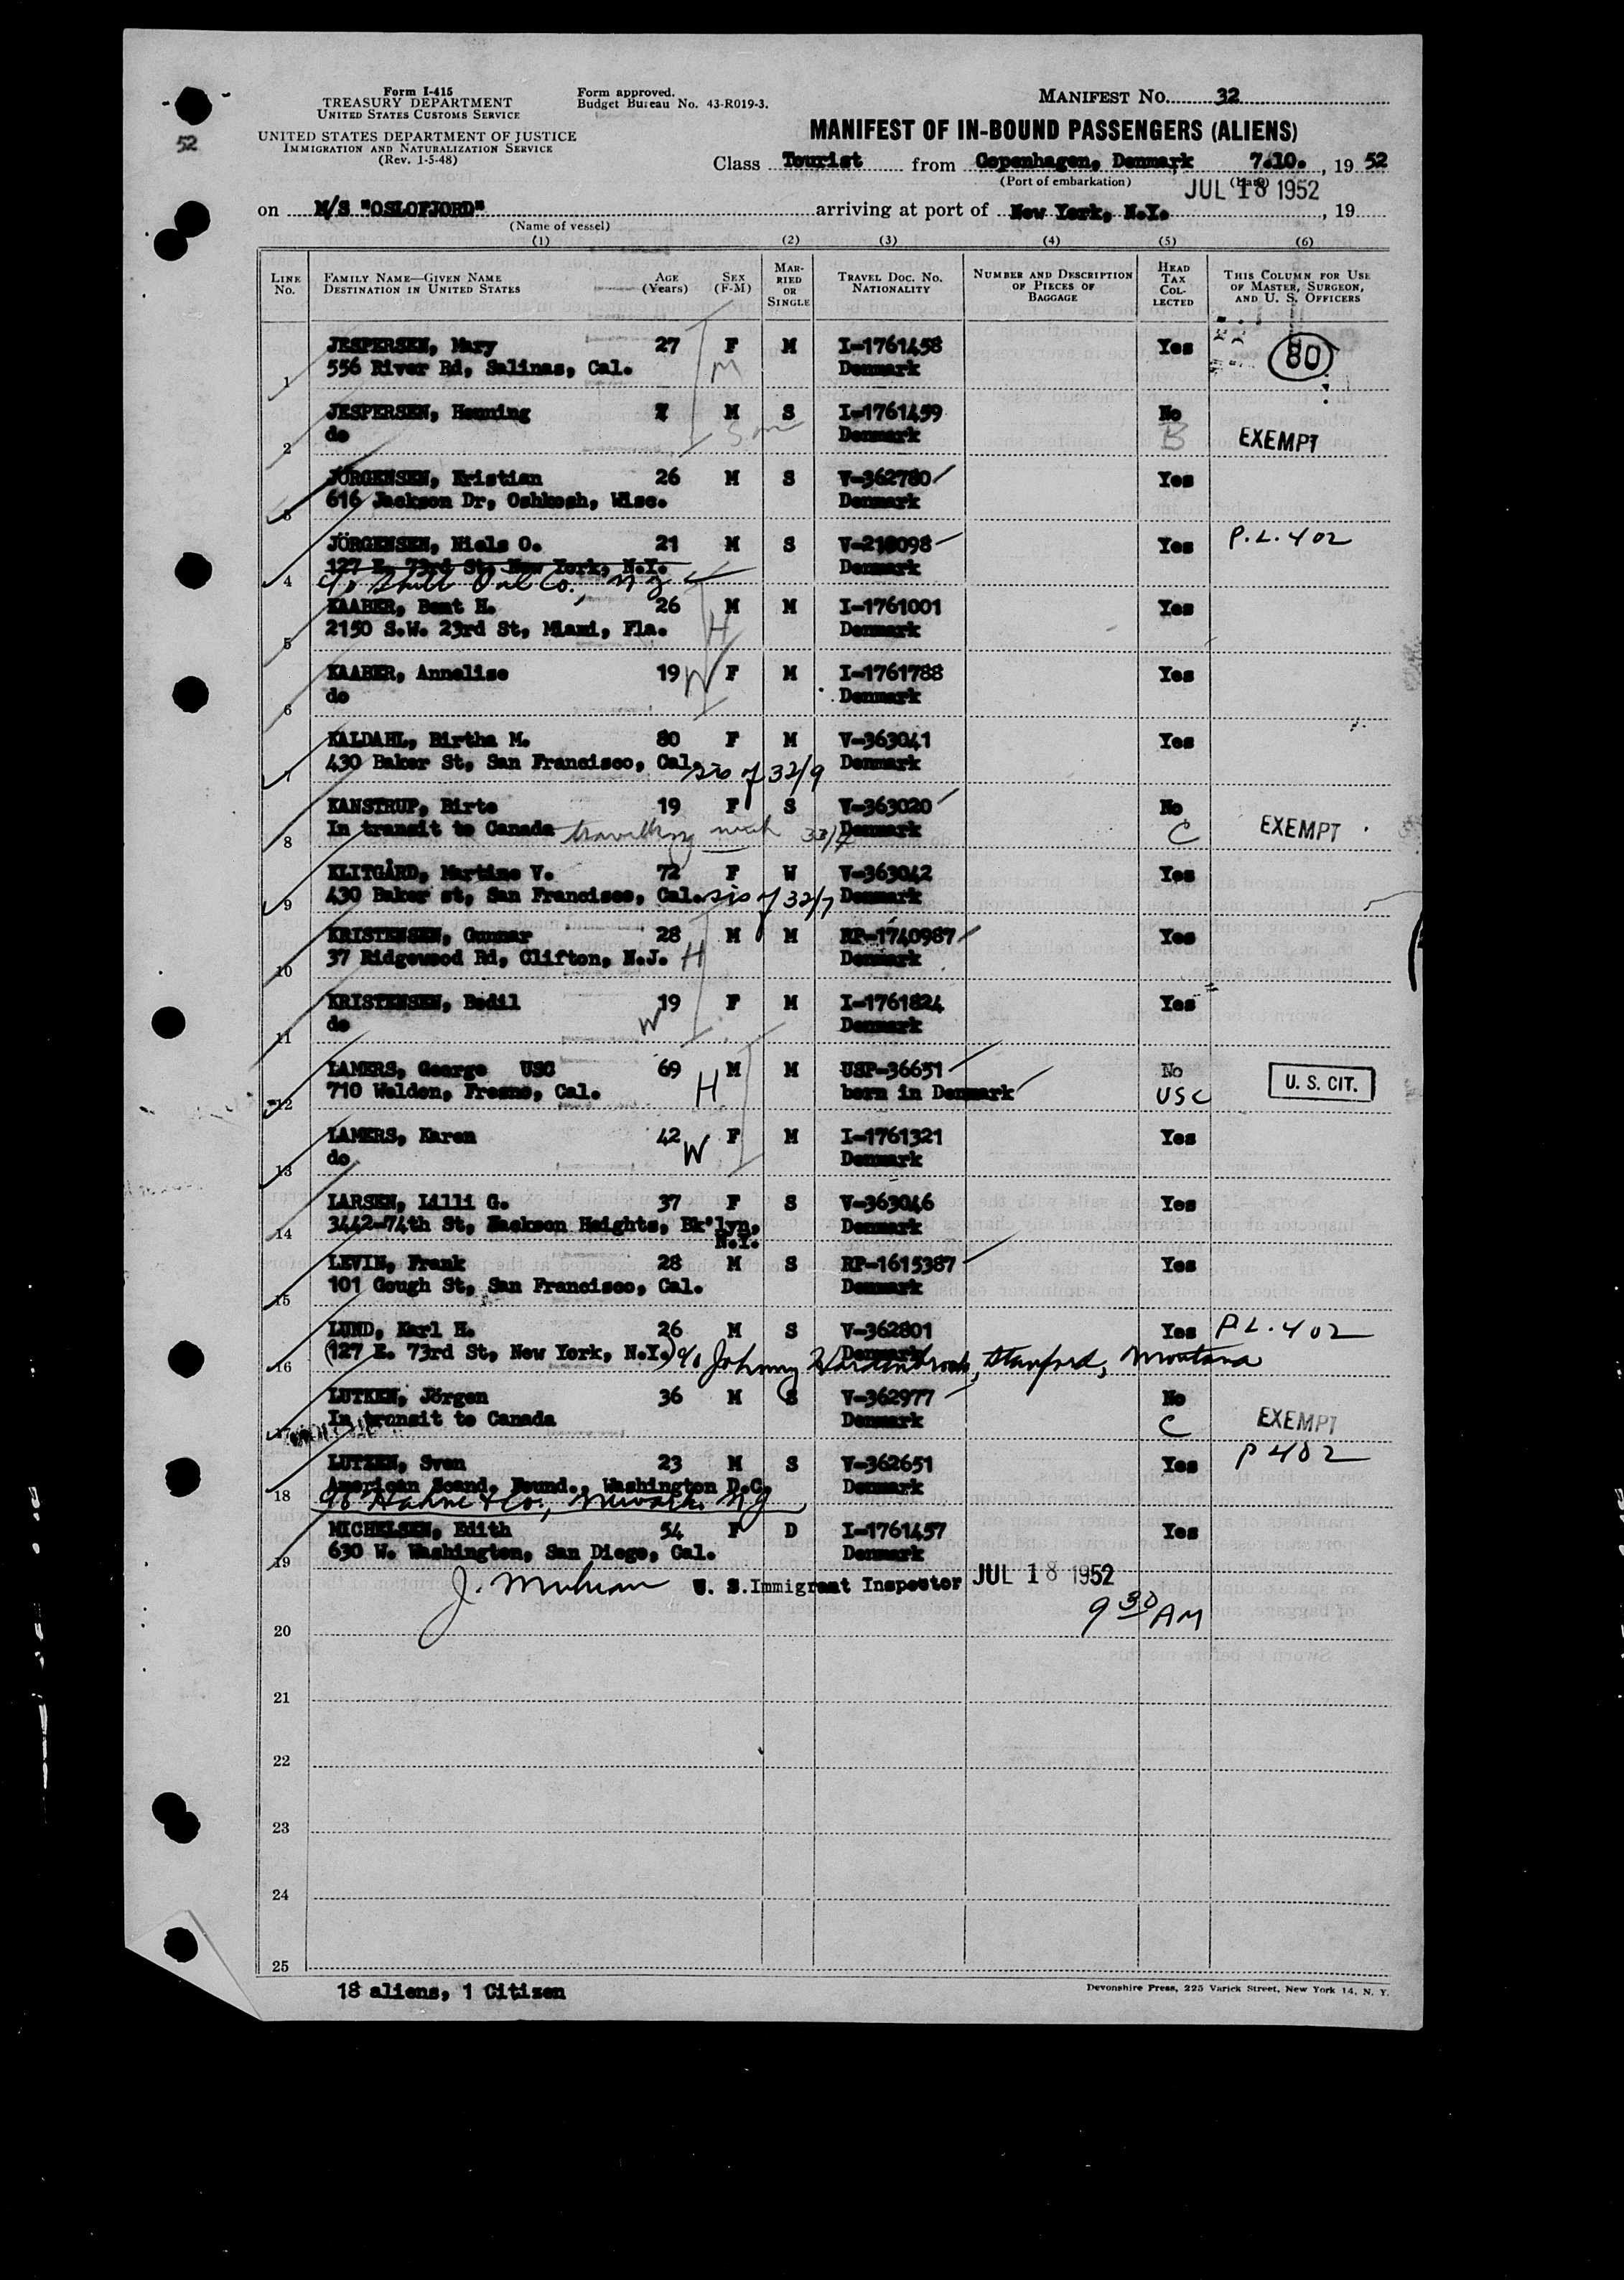 Form I-415
TREASURY DEPARTMENT
UNITED STATES CUSTOMS SERVICE
UNITED STATES DEPARTMENT OF JUSTICE
IMMIGRATION AND NATURALIZATION SERVICE
(Rev. 1-5-48)
Form approved.
Budget Bureau No. 43-R019-3.
52
MANIFEST NO. 32
MANIFEST OF IN-BOUND PASSENGERS (ALIENS)
Class Tourist from Copenhagen, Denmark 7.10., 19 52
(Port of embarkation) (Date)
JUL 18 1952
on M/S "OSLOFJORD" arriving at port of New York, N.Y. , 19
(Name of vessel)
(1) (2) (3) (4) (5) (6)
LINE NO. FAMILY NAME—GIVEN NAME DESTINATION IN UNITED STATES AGE (Years) SEX (F-M) MARRIED OR SINGLE TRAVEL DOC. NO. NATIONALITY NUMBER AND DESCRIPTION OF PIECES OF BAGGAGE HEAD TAX COLLECTED THIS COLUMN FOR USE OF MASTER, SURGEON, AND U. S. OFFICERS
JESPERSEN, Mary 27 F M I-1761458 Yes 80
1 556 River Rd, Salinas, Cal. M Denmark
JESPERSEN, Henning 7 M S I-1761459 No
2 do Son Denmark B EXEMPT
JÖRGENSEN, Kristian 26 M S V-362780 Yes
3 616 Jackson Dr, Oshkosh, Wisc. Denmark
JÖRGENSEN, Niels O. 21 M S V-218098 Yes P.L. 402
127 E. 73rd St, New York, N.Y. Denmark
4 c/o Shell Oil Co., N.Y.
KAABER, Bent H. 26 M M I-1761001 Yes
5 2150 S.W. 23rd St, Miami, Fla. H Denmark
KAABER, Annelise 19 W F M I-1761788 Yes
6 do Denmark
KALDAHL, Birtha M. 80 F M V-363041 Yes
7 430 Baker St, San Francisco, Cal. sis of 32/9 Denmark
KANSTRUP, Birte 19 F S V-363020 No
8 In transit to Canada travelling with Denmark C EXEMPT
KLITGÅRD, Martine V. 72 F W V-363042 Yes
9 430 Baker st, San Francisco, Cal. sis of 32/7 Denmark
KRISTENSEN, Gunnar 28 M M RP-1740987 Yes
10 37 Ridgewood Rd, Clifton, N.J. H Denmark
KRISTENSEN, Bodil 19 F M I-1761824 Yes
11 do W Denmark
LAMERS, George USC 69 M M USP-36651 No
12 710 Weldon, Fresno, Cal. H born in Denmark USC U. S. CIT.
LAMERS, Karen 42 W F M I-1761321 Yes
13 do Denmark
LARSEN, Lilli G. 37 F S V-363046 Yes
14 3442-74th St, Jackson Heights, Bk'lyn, N.Y. Denmark
LEVIN, Frank 28 M S RP-1615387 Yes
15 101 Gough St, San Francisco, Cal. Denmark
LUND, Karl H. 26 M S V-362801 Yes P.L. 402
16 (127 E. 73rd St, New York, N.Y.) c/o Johnny Denmark Stanford, Montana
LUTKEN, Jörgen 36 M S V-362977 No
17 In transit to Canada Denmark C EXEMPT
LUTZEN, Sven 23 M S V-362651 Yes P 402
18 American Scand. Found., Washington D.C. Denmark
c/o Hahne & Co., Newark NJ
MICHELSEN, Edith 54 F D I-1761457 Yes
19 630 W. Washington, San Diego, Cal. Denmark
U. S. Immigrant Inspector JUL 18 1952
9 30 AM
20
21
22
23
24
25
18 aliens, 1 Citizen
Devonshire Press, 225 Varick Street, New York 14, N. Y.